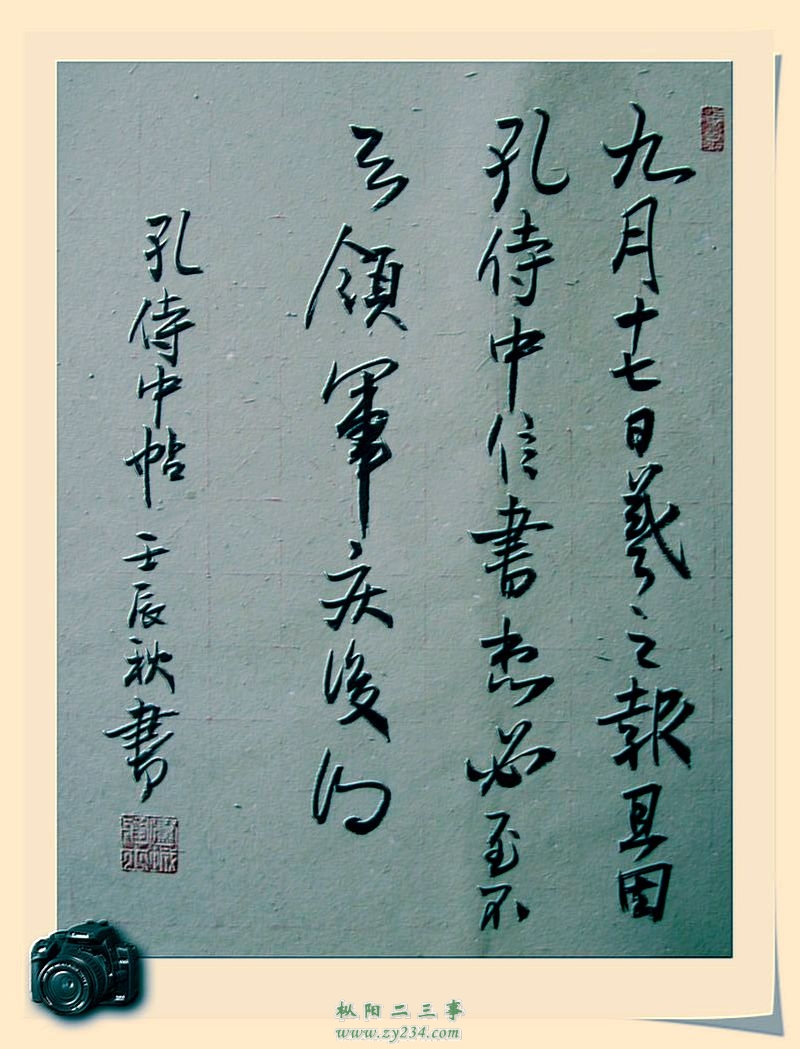 九月十七日羲之報且因
孔侍中信書想必至不
知領軍疾後問
孔侍中帖 壬辰秋書
枞阳二三事
www.zy234.com